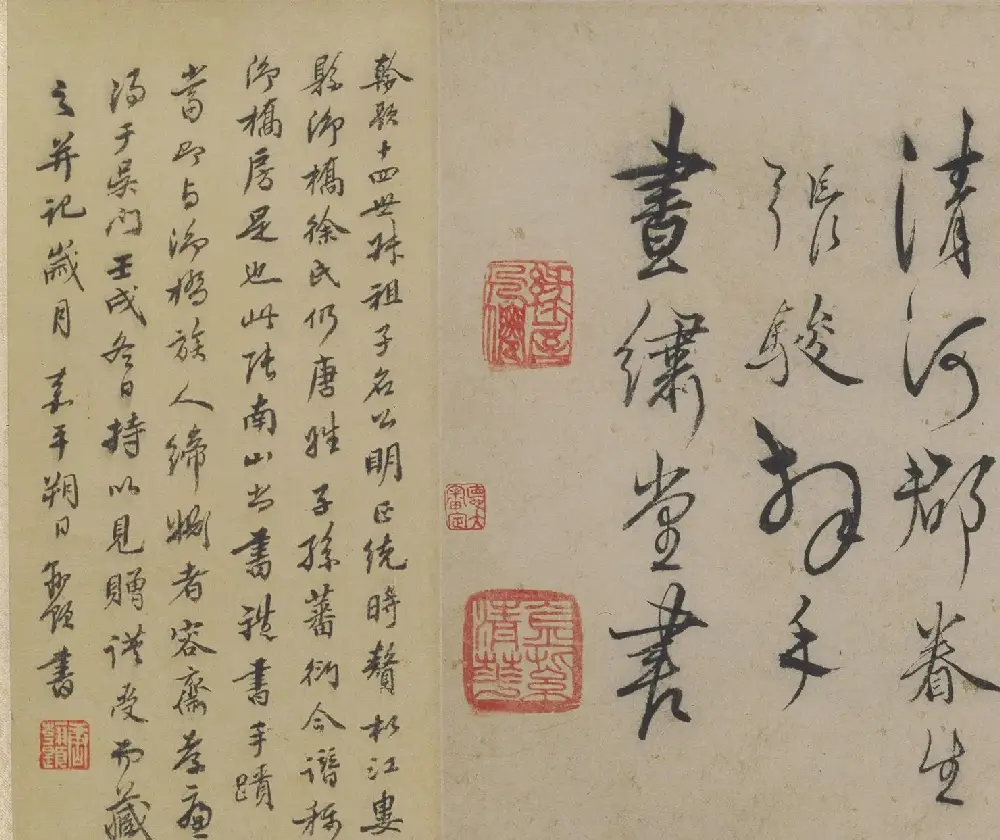 清河郡眷生
張駿拜手
晝繡堂書
翰題十四世叔祖子名公明正統時贅松江婁
縣御橋徐氏仍唐姓子孫蕃衍今譜稱
御橋房是也此張南山書手蹟
當即與御橋族人締姻者容齋孝廉
得于吳門壬戌冬日持以見贈謹受而藏
之并記歲月嘉平朔日翰題書